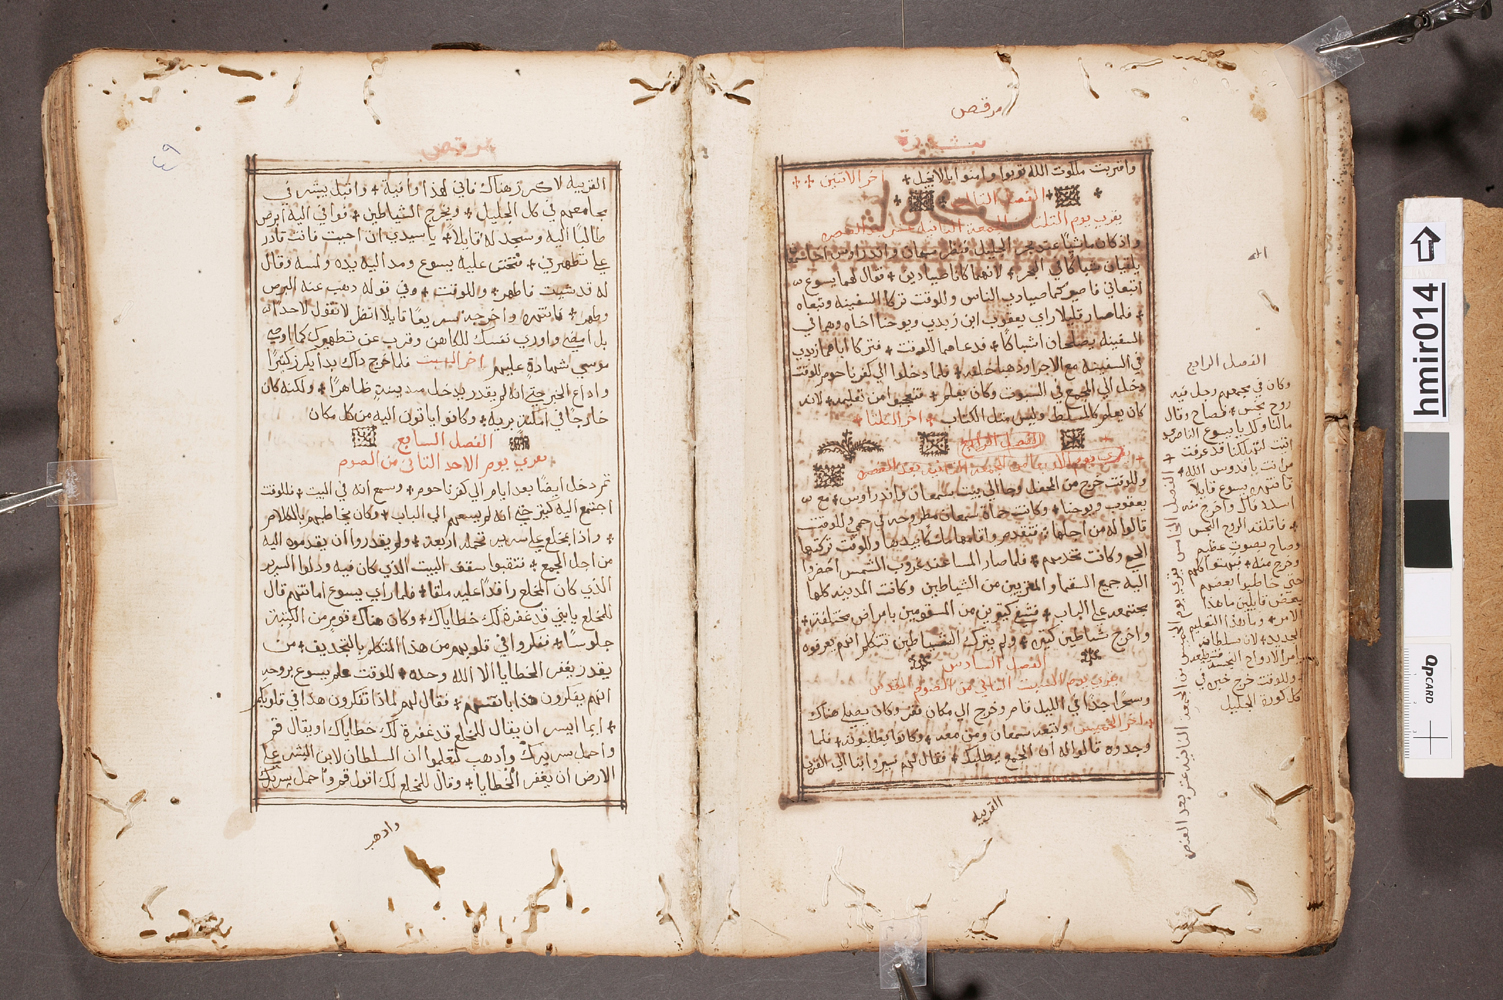 مرقص
بشارة
واقتربت ملكوت الله توبوا وامنوا بالانجيل اخر الاثنين
الفصل
يقرب يوم
واذ كان ماشيا عند بحر الجليل نظر سمعان واندراوس اخاه
يلقيان شباكا في البحر لانهما كانا صيادين فقال لهما يسوع
اتبعاني فاصيركما صيادي الناس وللوقت تركا السفينه وتبعاه
فلما صار قليلا راى يعقوب ابن زبدي ويوحنا اخاه وهما في
السفينه يصلحان اشباكا فدعاهما للوقت فتركا اباهما زبدي
في السفينه مع الاجرا وذهبا خلفه فلما دخلوا الى كفرناحوم للوقت
دخل الى المجمع في السبوت وكان يعلم فتعجبوا من تعليمه لانه
كان يعلم كالمسلط وليس مثل الكتاب اخر الثلثا
الفصل الرابع
وللوقت خرج من المحفل وجا الى بيت سمعان واندراوس مع
يعقوب ويوحنا وكانت حماة سمعان مطروحه في حمى وللوقت
قالوا له من اجلها فتقدم واقامها ماسكا بيدها وللوقت تركتها
الحمى وكانت تخدمهم فلما صار المسا عند غروب الشمس احضروا
اليه جميع السقما والمعتريين من الشياطين وكانت المدينه كلها
مجتمعه على الباب فشفى كثيرين من المسقومين بامراض مختلفه
واخرج شياطين كثيره ولم يترك الشياطين تتكلم انهم يعرفوه
الفصل السادس
يقرب يوم السبت الثاني من الصوم المقدس
وسحرا جدا في الليل قام وخرج الى مكان قفر وكان يصلي هناك
اخر الخميس ولتبعه سمعان ومن معه وكانوا يطلبونه فلما
وجدوه قالوا له ان الجميع يطلبك فقال لهم سيروا بنا الى القرى
القريبه
الفصل الرابع
وكان في مجمعهم رجل فيه
روح نجس فصاح وقال
مالنا ولك يا يسوع الناصري
اتيت لتهلكنا قد عرفت
من انت يا قدوس الله
فانتهره يسوع قايلا
اسدد فاك واخرج منه
فاقلقه الروح النجس
وصاح بصوت عظيم
وخرج منه فبهتوا كلهم
حتى خاطبوا بعضهم
بعض قايلين ما هذا
الامر وما هذا التعليم
الجديد لان بسلطان
يامر الارواح النجسه فتطيعه
وللوقت خرج خبره في
كل كورة الجليل
الفصل الخامس يقرب يوم الخميس من الجمعه الثانيه عشر بعد العنصره
مرقص
٤٩
القريبه لاكرز هناك فاني لهذا وافيت واقبل يبشر في
مجامعهم في كل الجليل ويخرج الشياطين فوافى اليه ابرص
طالبا اليه وسجد له قايلا يا سيدي ان احببت فانت قادر
على تطهيري فتحنن عليه يسوع ومد اليه يده ولمسه وقال
له قد شيت فاطهر وللوقت وفي قوله ذهب عنه البرص
وطهر فانتهره واخرجه سريعا قايلا انظر لا تقول لاحد
بل امضي واوري نفسك للكاهن وقرب عن تطهيرك كما اوصى
موسى شهادة عليهم اخر السبت فلما خرج ذاك بدا يكرز كثيرا
واذاع الخبر حتى انه لم يقدر يدخل مدينة ظاهرا ولكنه كان
خارجا في امكنة برية وكانوا ياتون اليه من كل مكان
الفصل السابع
يقرب يوم الاحد الثاني من الصوم
ثم دخل ايضا بعد ايام الى كفرناحوم وسمع انه في البيت فللوقت
اجتمع اليه كثير حتى انه لم يسعهم الى الباب وكان يخاطبهم بالكلام
واذا بمخلع على سرير تحمله اربعه ولم يقدروا ان يقدموه اليه
من اجل الجمع فنقبوا سقف البيت الذي كان فيه ودلوا السرير
الذي كان المخلع راقدا عليه ملقا فلما راى يسوع امانتهم قال
للمخلع يا بني قد غفرة لك خطاياك وكان هناك قوم من الكتبة
جلوسا ففكروا في قلوبهم من هذا المتكلم بالتجديف من
يقدر يغفر الخطايا الا الله وحده للوقت علم يسوع بروحه
انهم يفكرون هذا بانفسهم فقال لهم لماذا تفكرون هذا في قلوبكم
ايما ايسر ان يقال للمخلع قد غفرة لك خطاياك او يقال قم
واحمل سريرك واذهب لتعلموا ان السلطان لابن البشر على
الارض ان يغفر الخطايا وقال للمخلع لك اقول قم واحمل سريرك
واذهب
hmir014
QPCARD